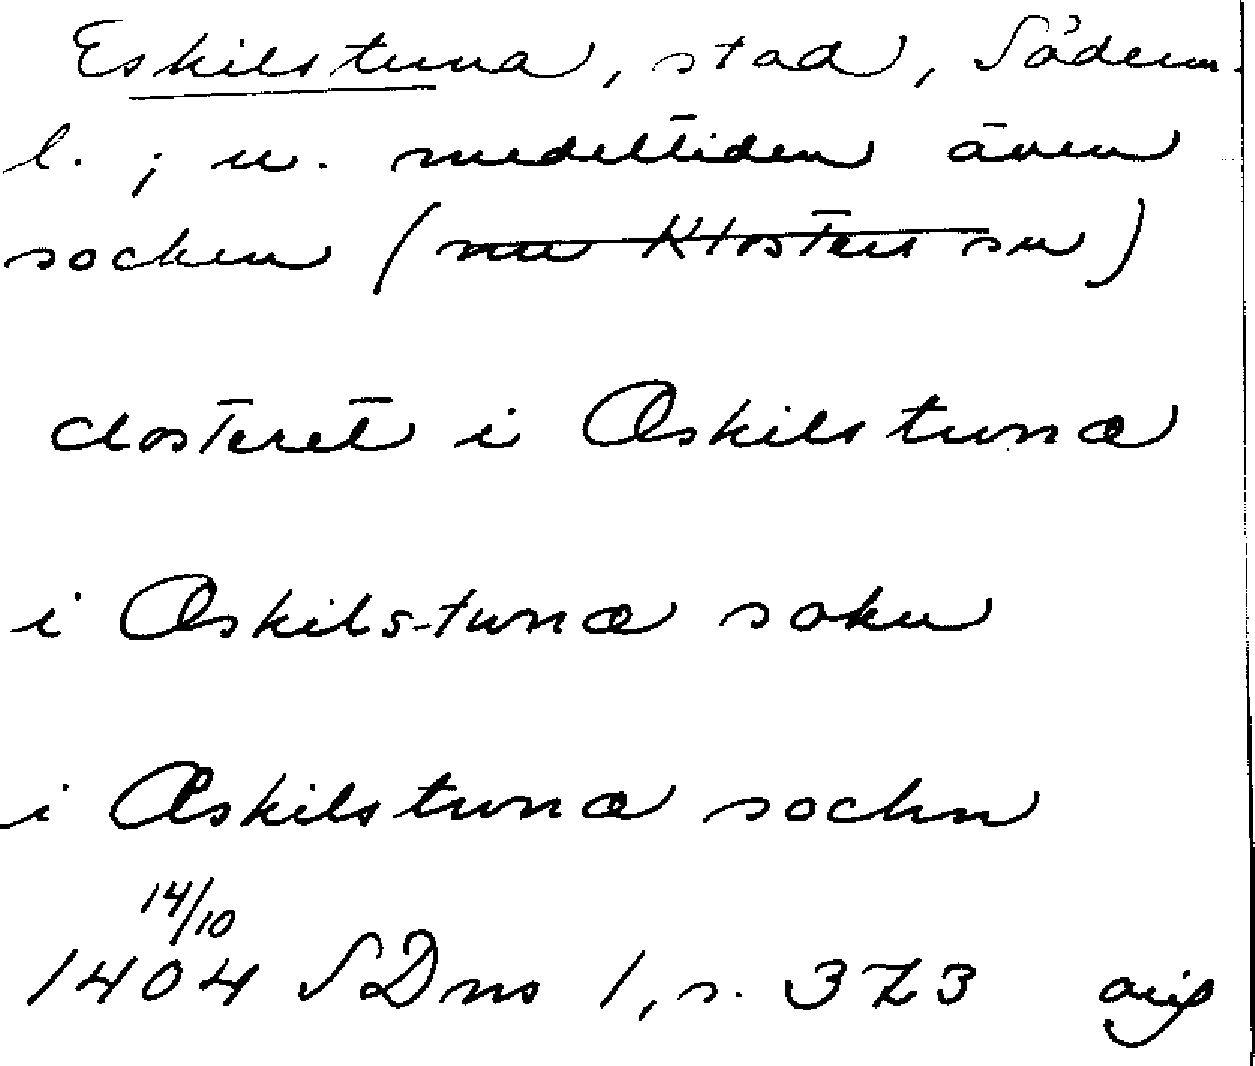 Eskilstuna, stad, Söderm.
l.; u. medeltiden även
socken (nu Klosters sn)
closteret i Æskilstuna
i Æskils-tuna sokn
i Æskilstuna sochn
14/10
1404 SDns 1, s. 373 orig